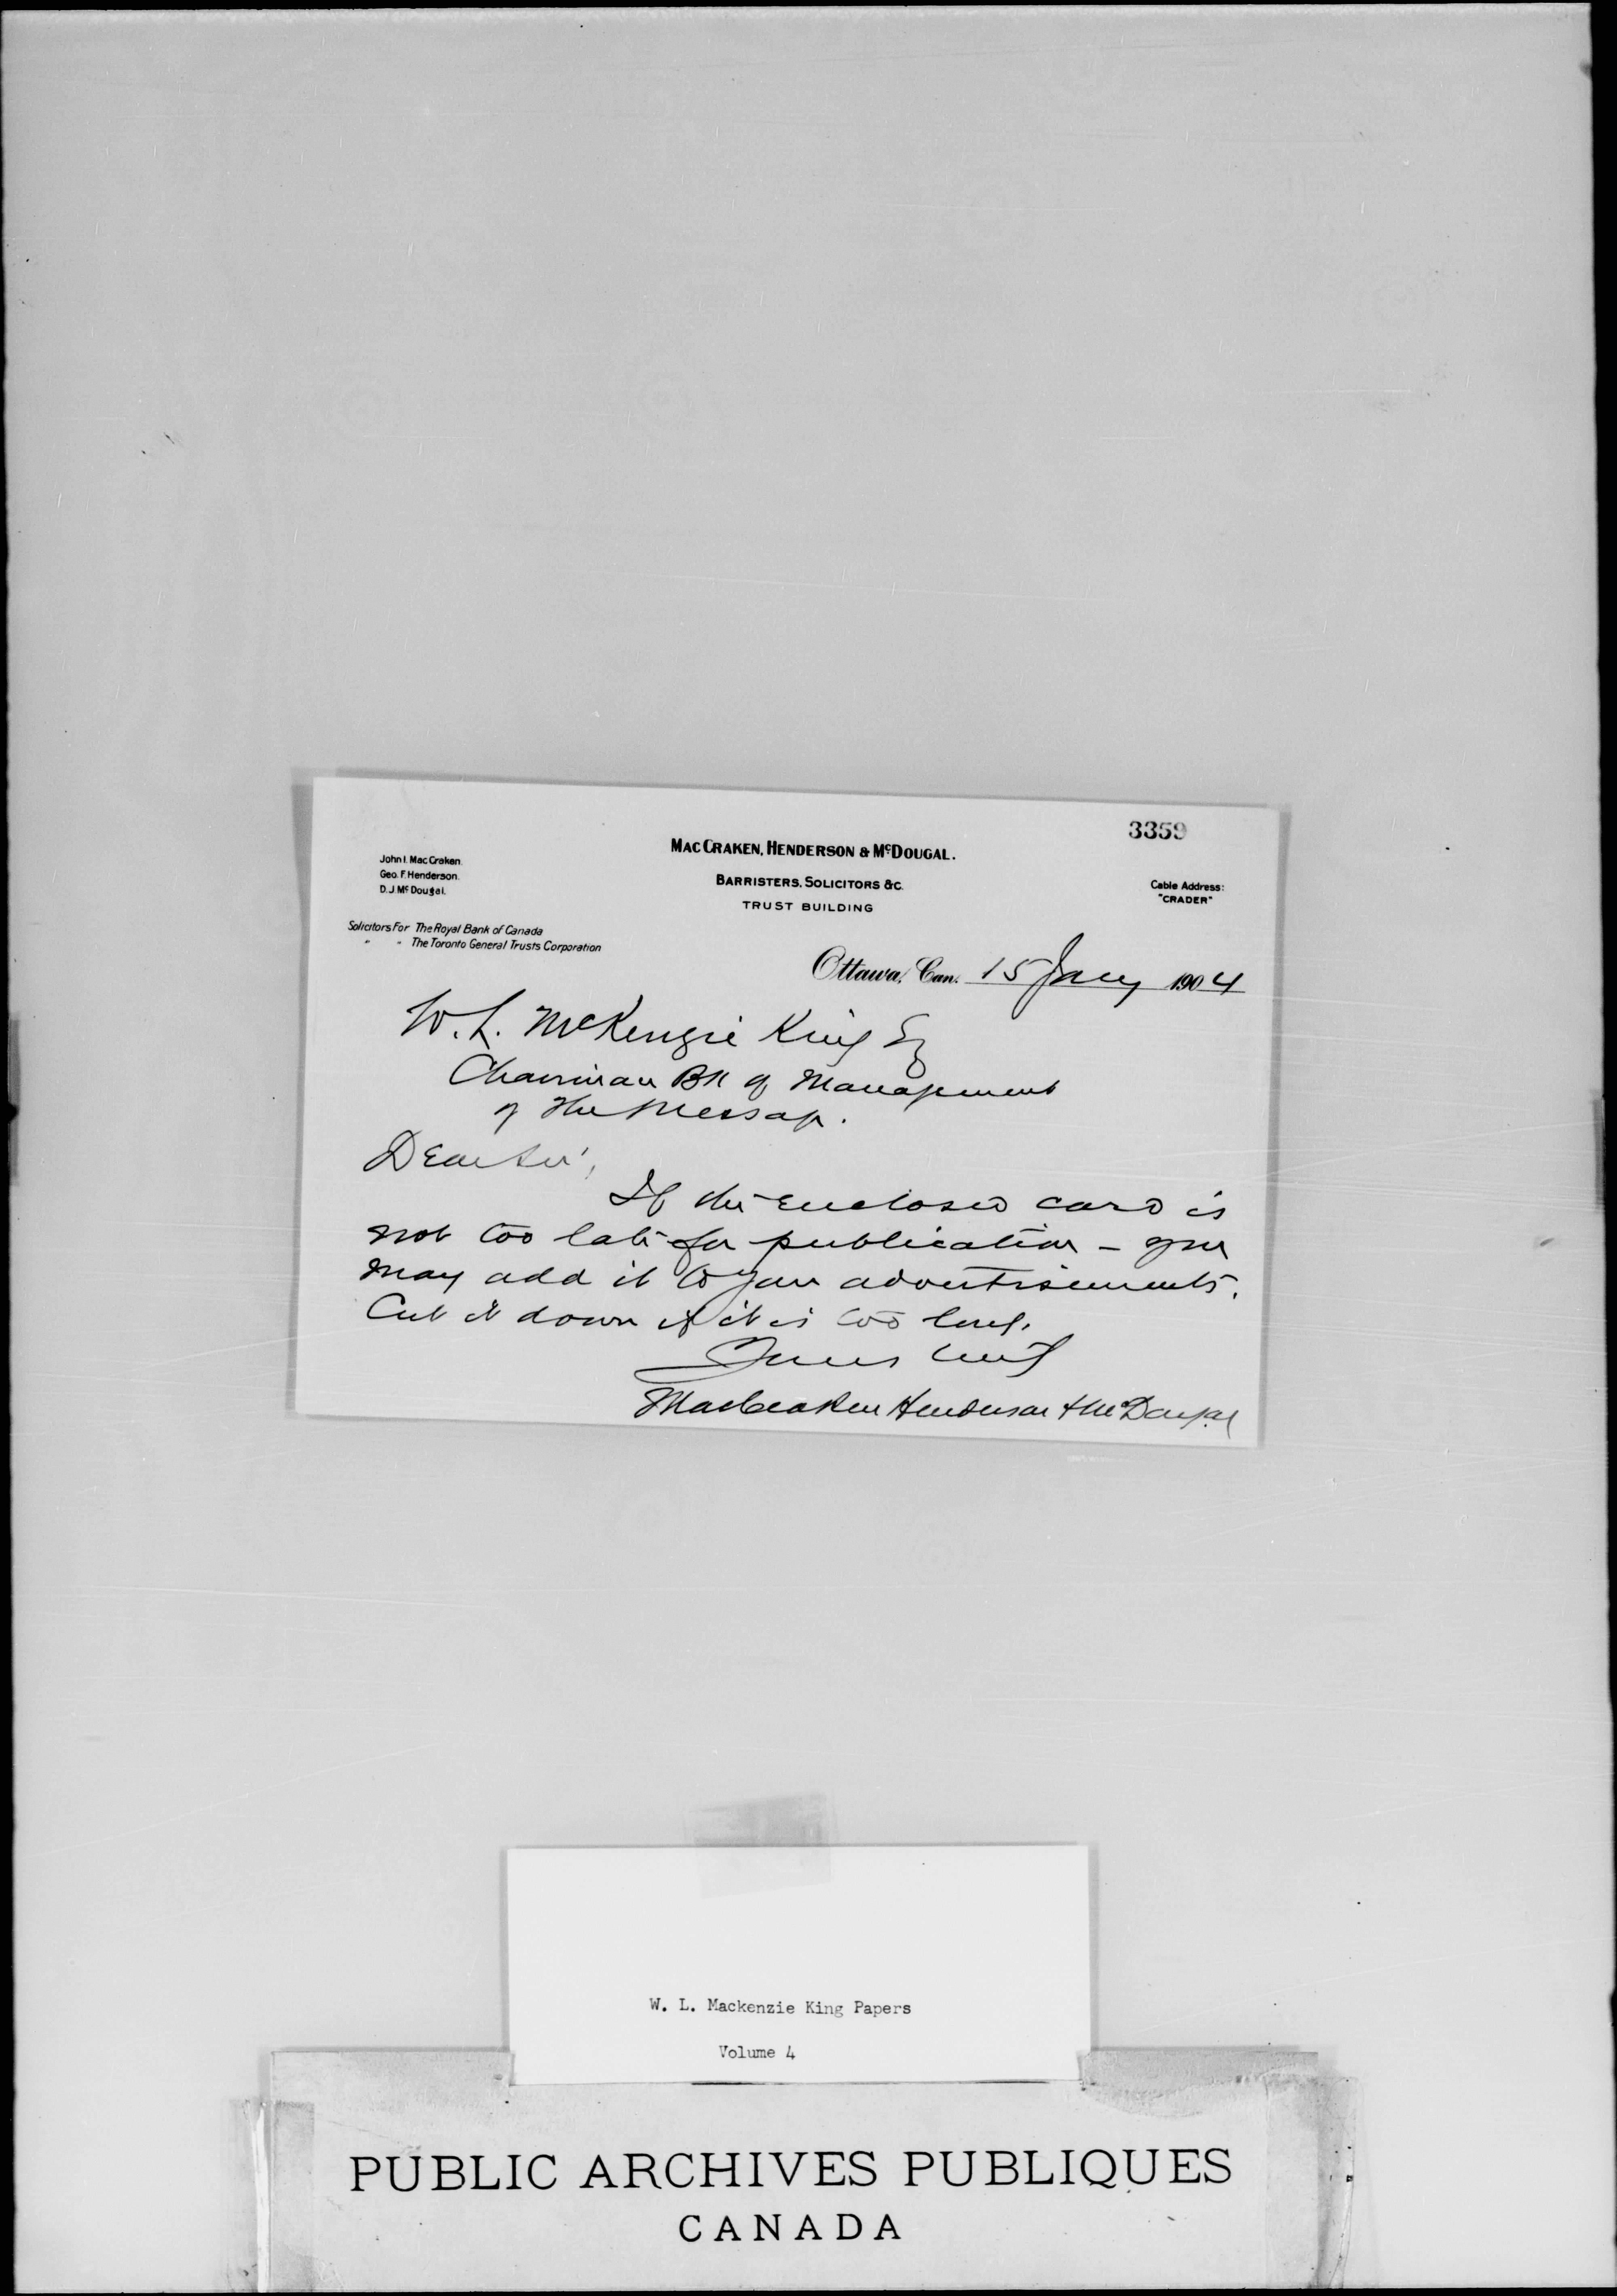 3359
MacCraken, Henderson & McDougal.
Barristers, Solicitors &c.
TRUST BUILDING
John I. MacCraken.
Geo. F. Henderson.
D. J. McDougal.
Cable Address:
"CRADER"
Solicitors For The Royal Bank of Canada
" " The Toronto General Trusts Corporation
Ottawa, Can. 15 Jany 1904
W. L. McKenzie King Esq
Chairman Bd of Management
of The Message.
Dear Sir,
If the enclosed card is
not too late for publication - you
may add it to your advertisements.
Cut it down if it is too long.
Yours truly
MacCraken Henderson & McDougal
W. L. Mackenzie King Papers
Volume 4
PUBLIC ARCHIVES PUBLIQUES
CANADA